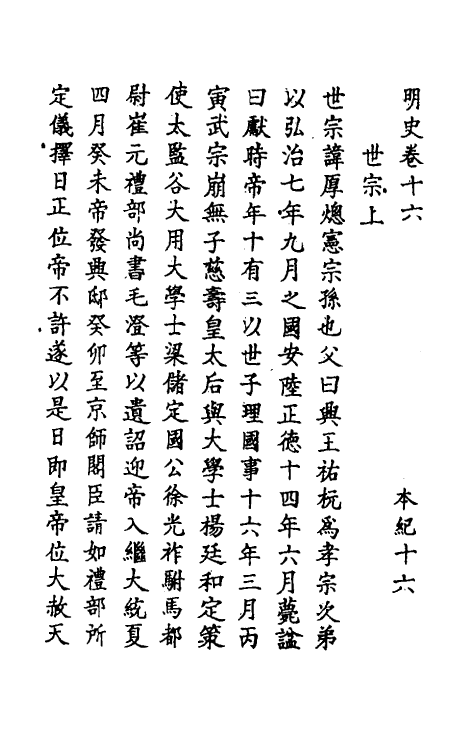 明史卷十六 本紀十六
世宗上
世宗諱厚熜憲宗孫也父曰興王祐杬爲孝宗次弟
以弘治七年九月之國安陸正徳十四年六月薨諡
曰獻時帝年十有三以世子理國事十六年三月丙
寅武宗崩無子慈壽皇太后與大學士楊廷和定策
使太監谷大用大學士梁儲定國公徐光祚駙馬都
尉崔元禮部尚書毛澄等以遺詔迎帝入繼大統夏
四月癸未帝發興邸癸卯至京師閣臣請如禮部所
定儀擇日正位帝不許遂以是日即皇帝位大赦天